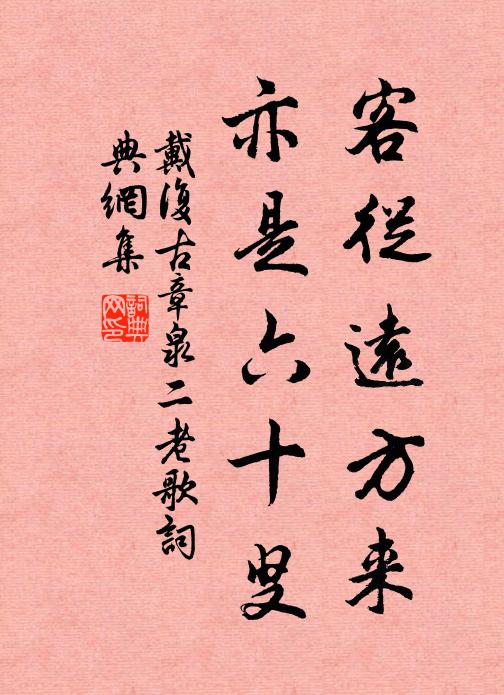 客從遠方来
亦是六十叟
戴復古章泉二老歌詞
典網集
詞典网印